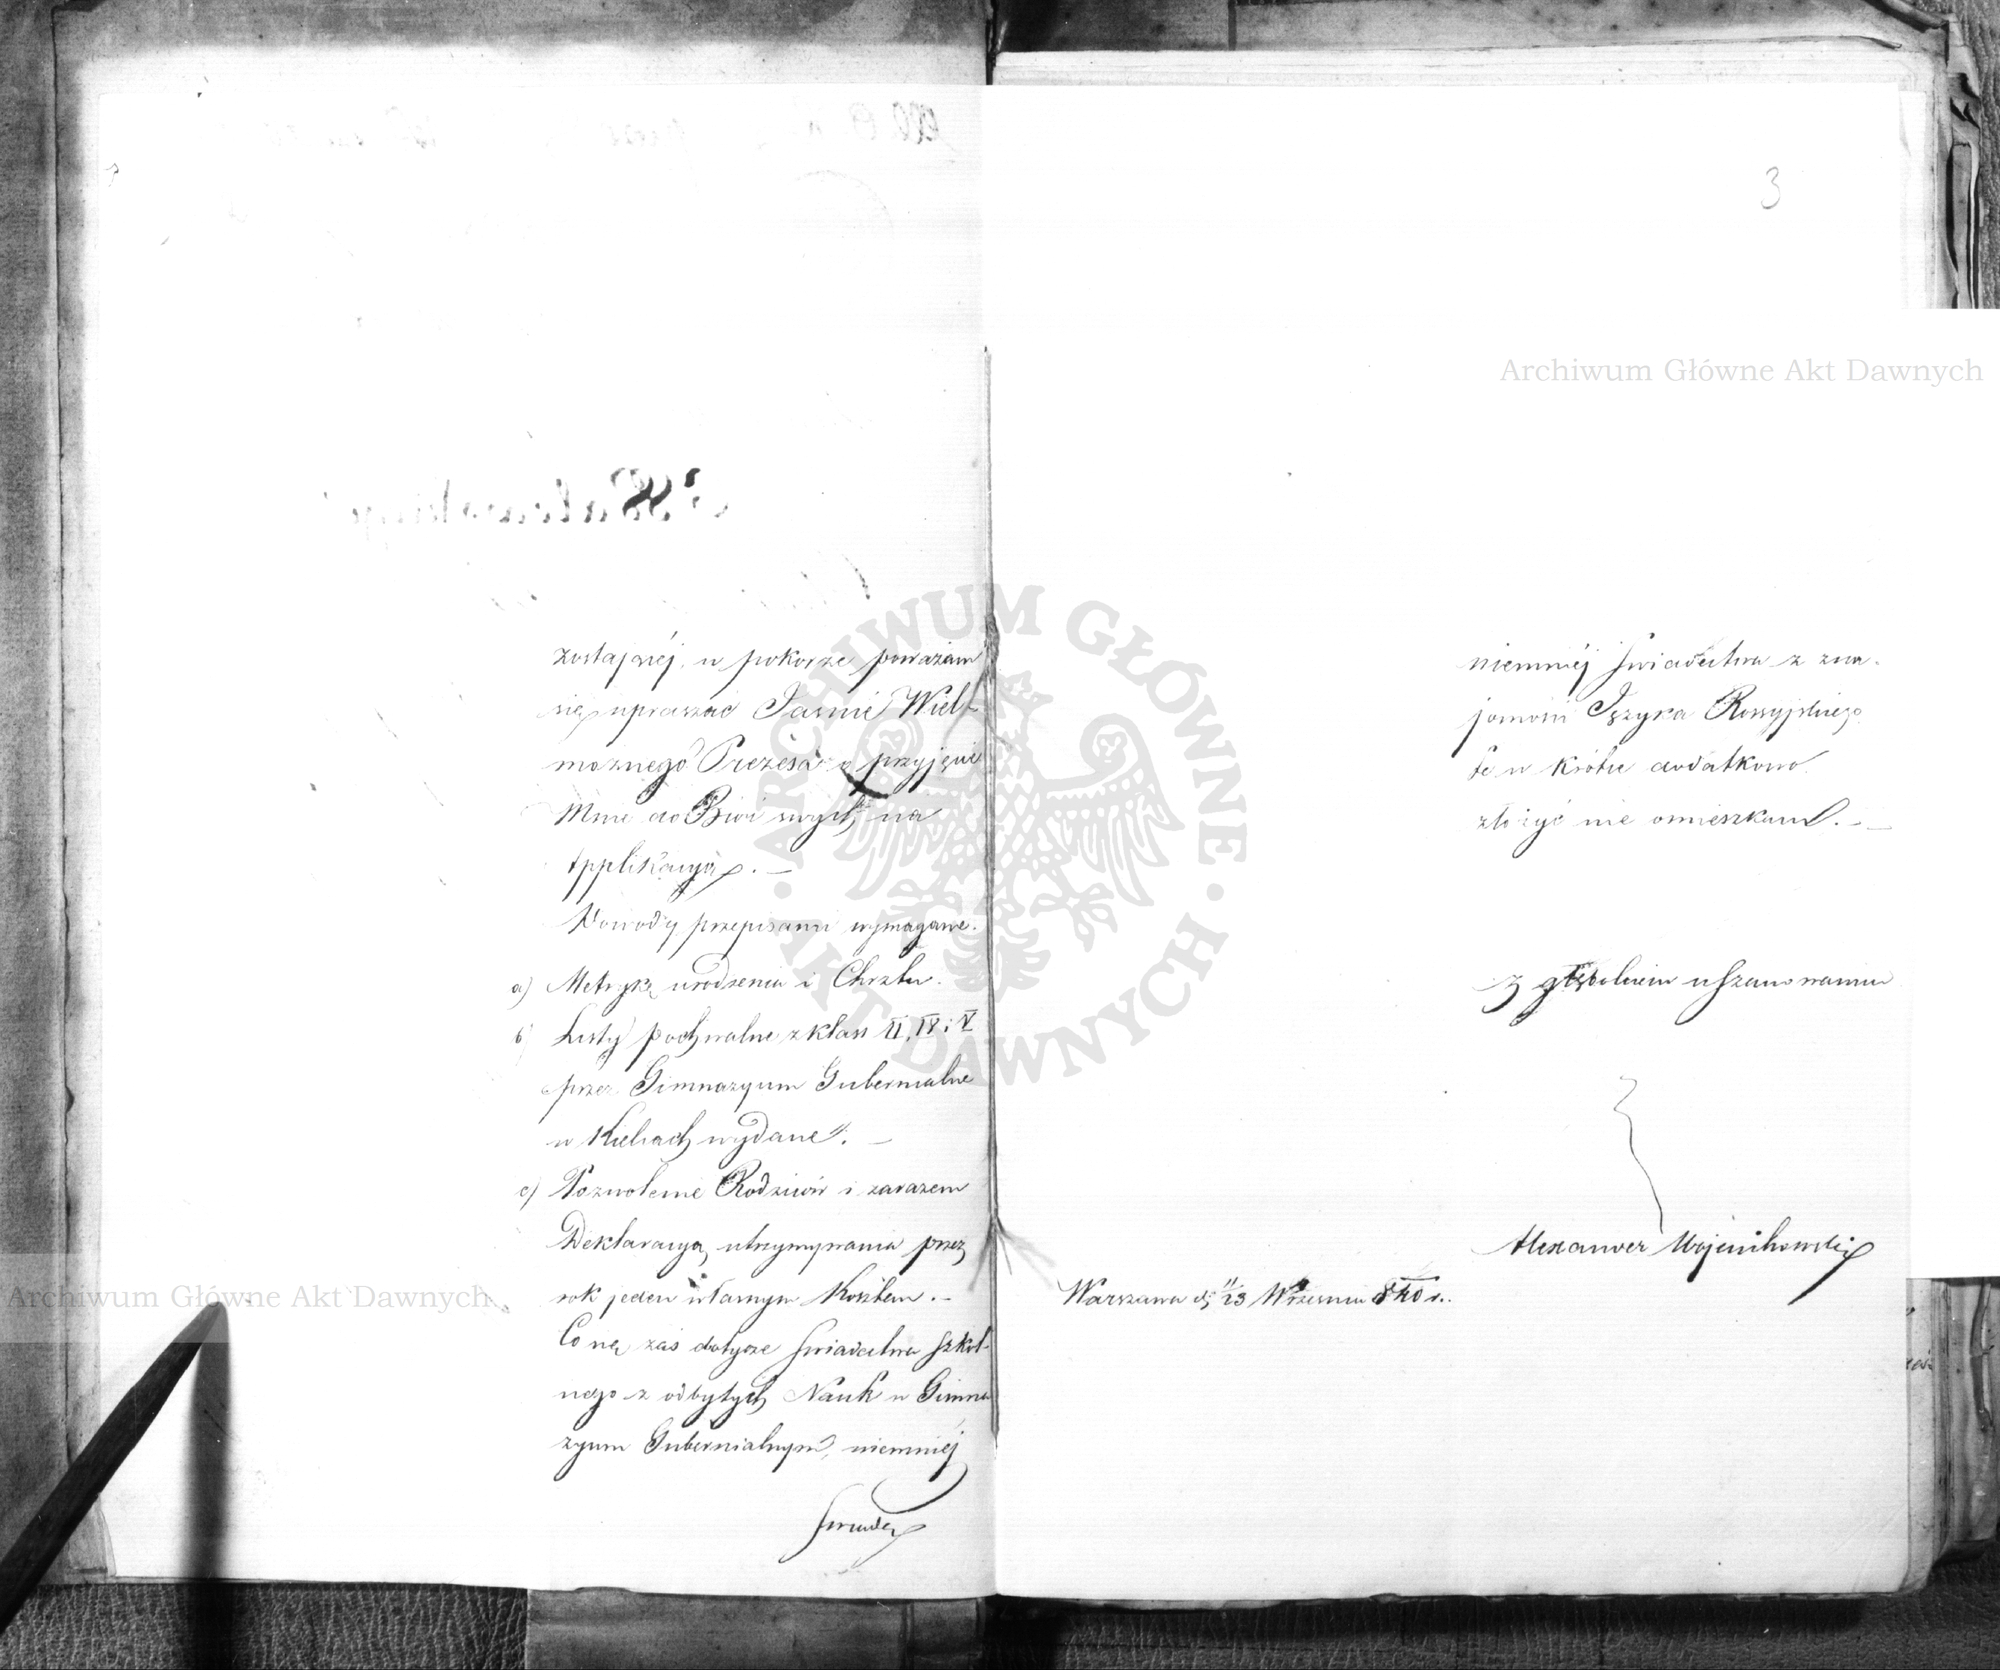 zostającéj, w pokorze poważam
się upraszać Jaśnie Wiel-
możnego Prezesa o przyjęcie
Mnie do Biór swych na
Applikacyą. —
Dowody przepisami wymagane.
a) Metrykę urodzenia i Chrztu.
b) Listy pochwalne z klass II, IV i V
przez Gimnazyum Gubernialne
w Kielcach wydane. —
c) Pozwolenie Rodziców i zarazem
Deklaracyą utrzymywania przez
rok jeden własnym Kosztem. —
Co się zaś dotycze świadectwa szkol-
nego z odbytych Nauk w Gimna
zyum Gubernialnym, niemniéj
3
niemniéj świadectwa z zna-
jomości Języka Rossyjskiego
te w krótce dodatkowo
złożyć nie omieszkam. —
Z głębokiem uszanowaniem
Alexander Wojciechowski
Warszawa d. 11/23 Września 1840 r.
Archiwum Główne Akt Dawnych
ARCHIWUM GŁÓWNE · AKT DAWNYCH ·
Archiwum Główne Akt Dawnych